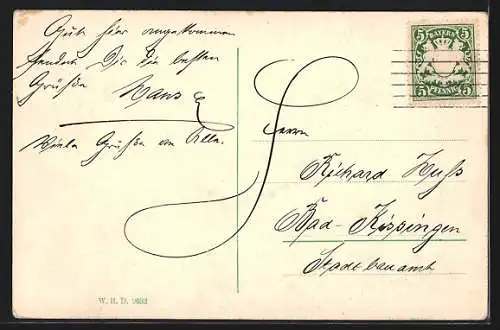 Gut hier angekommen
sendet Dir die besten
Grüße Hans
Viele Grüße an Alle.
BAYERN
5 5
5 5
PFENNIG
Herrn
Richard Huß
Bad-Kissingen
Stadtbauamt
W. H. D.